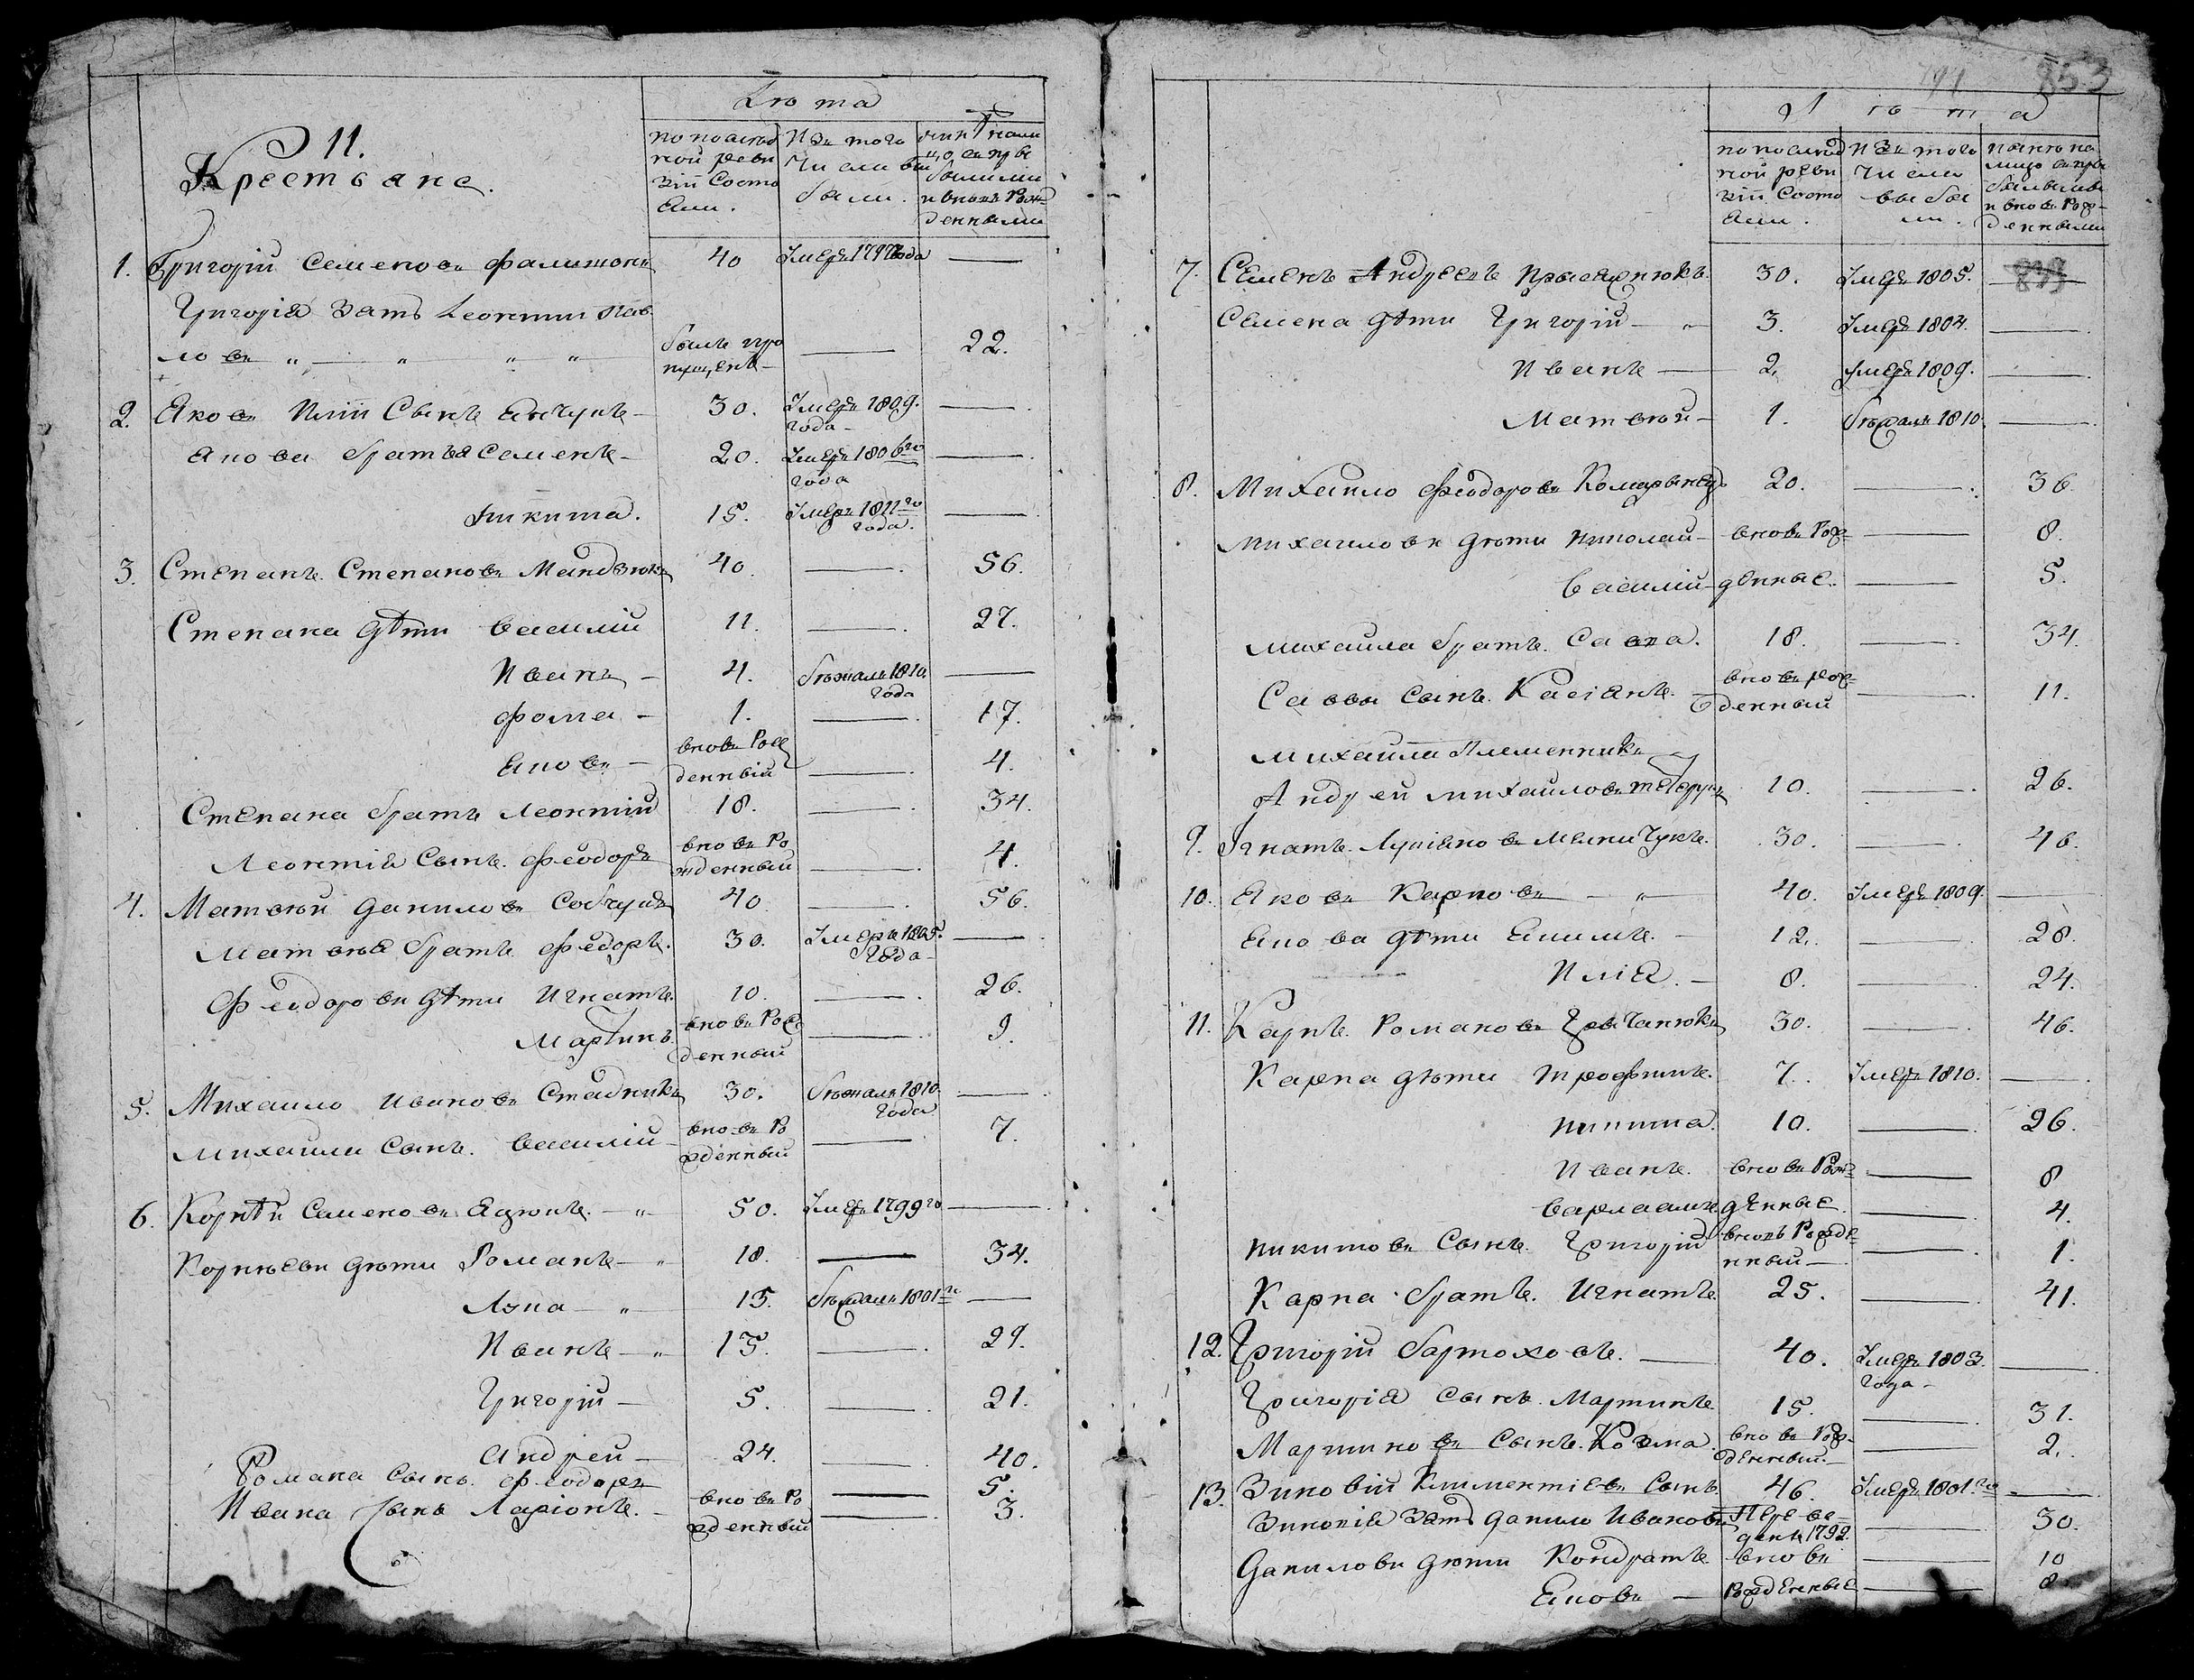 Лѣта
11.
Крестьяне.
по послѣд
ней реви
зіи Состо
яли.
Изъ того
Числа вы
были.
нынѣ на ли
цо съ при
былыми
и вновь Рож
денными
1. Григорій Семеновъ 40 Умеръ 1797 года —
Григорія Зять Леонтий Пав
ловъ „ — „ „ „ былъ про — 22.
пущенъ —
2. Яковъ Иліи Сынъ 30. Умеръ 1809. —
года —
Якова братья Семенъ — 20. Умеръ 1806го —
года
Никита. 15. Умеръ 1811го —
года.
3. Степанъ Степановъ 40. — 56.
Степана дѣти Василій 11. — 27.
Иванъ — 4. бѣжалъ 1810. —
года
Фома — 1. — 17.
Яковъ — вновь Рож — 4.
денный
Степана братъ Леонтий 18. — 34.
Леонтія Сынъ Феодоръ вновь Ро — 4.
жденный
4. Матвѣй Даниловъ 40 — 56.
Матвѣя братъ Федоръ. 30. Умеръ 1805. —
Года —
Феодоровы дѣти Игнатъ. 10. — 26.
Мартинъ. вновь Рож — 9.
денный
5. Михайло Ивановъ Стадникъ 30. бѣжалъ 1810. —
года
Михайла Сынъ. Василій вновь Ро — 7.
жденный
6. Корнѣй Семеновъ — „ 50. Умеръ 1799го —
Корнѣевы дѣти Романъ — „ 18. — 34.
— „ 15. бѣжалъ 1801го —
Иванъ — „ 13. — 29.
Григорій — 5. — 21.
Андрей — 24. — 40.
Романа Сынъ. Феодоръ — 5.
Ивана Сынъ Ларіонъ. вновь Ро — 3.
жденный
791 853
Лѣта
по послѣд
ней реви
зіи Состо
яли.
Изъ того
Числа
выбы
ли.
нынѣ на
лицо съ при
былыми
и вновь Рож
денными
7. Семенъ Андреевъ 30. Умеръ 1805. —
Семена дѣти Григорій — „ 3. Умеръ 1804. —
Иванъ — 2. Умеръ 1809. —
Матвѣй — 1. бѣжалъ 1810. —
8. Михайло Феодоровъ 20. — 36.
Михайловы дѣти Николай — вновь Рож — 8.
Василій — денные. — 5.
Михайла братъ. Савва. 18. — 34.
Саввы Сынъ. Касіянъ. — вновь рож — 11.
денный
Михайла Племенникъ
Андрей Михайловъ 10. — 26.
9. Игнатъ. 30. — 46.
10. Яковъ Карповъ — „ — 40. Умеръ 1809. —
Якова дѣти — 12. — 28.
Илія. — 8. — 24.
11. Карпъ. Романовъ 30. — 46.
Карпа дѣти Трофимъ. 7. Умеръ 1810. —
Никита. 10. — 26.
Иванъ. вновь Рож — 8
Варлаамъ денные. — 4.
Никитовъ Сынъ. Григорій вновь Рожде — 1.
нный —
Карпа братъ. Игнатъ. 25. — 41.
12. Григорій — 40. Умеръ 1803. —
года —
Григорія Сынъ. Мартинъ 15. — 31.
Мартиновъ Сынъ. Козма. вновь Рож — 2.
денный —
13. Зиновій Климентіевъ Сынъ 46. Умеръ 1801.го —
Зиновія Зять Данило Ивановъ Переве — 30.
денъ 1792.
Даниловы дѣти Кондратъ вновь — 10
Яковъ — Рожденные — 8